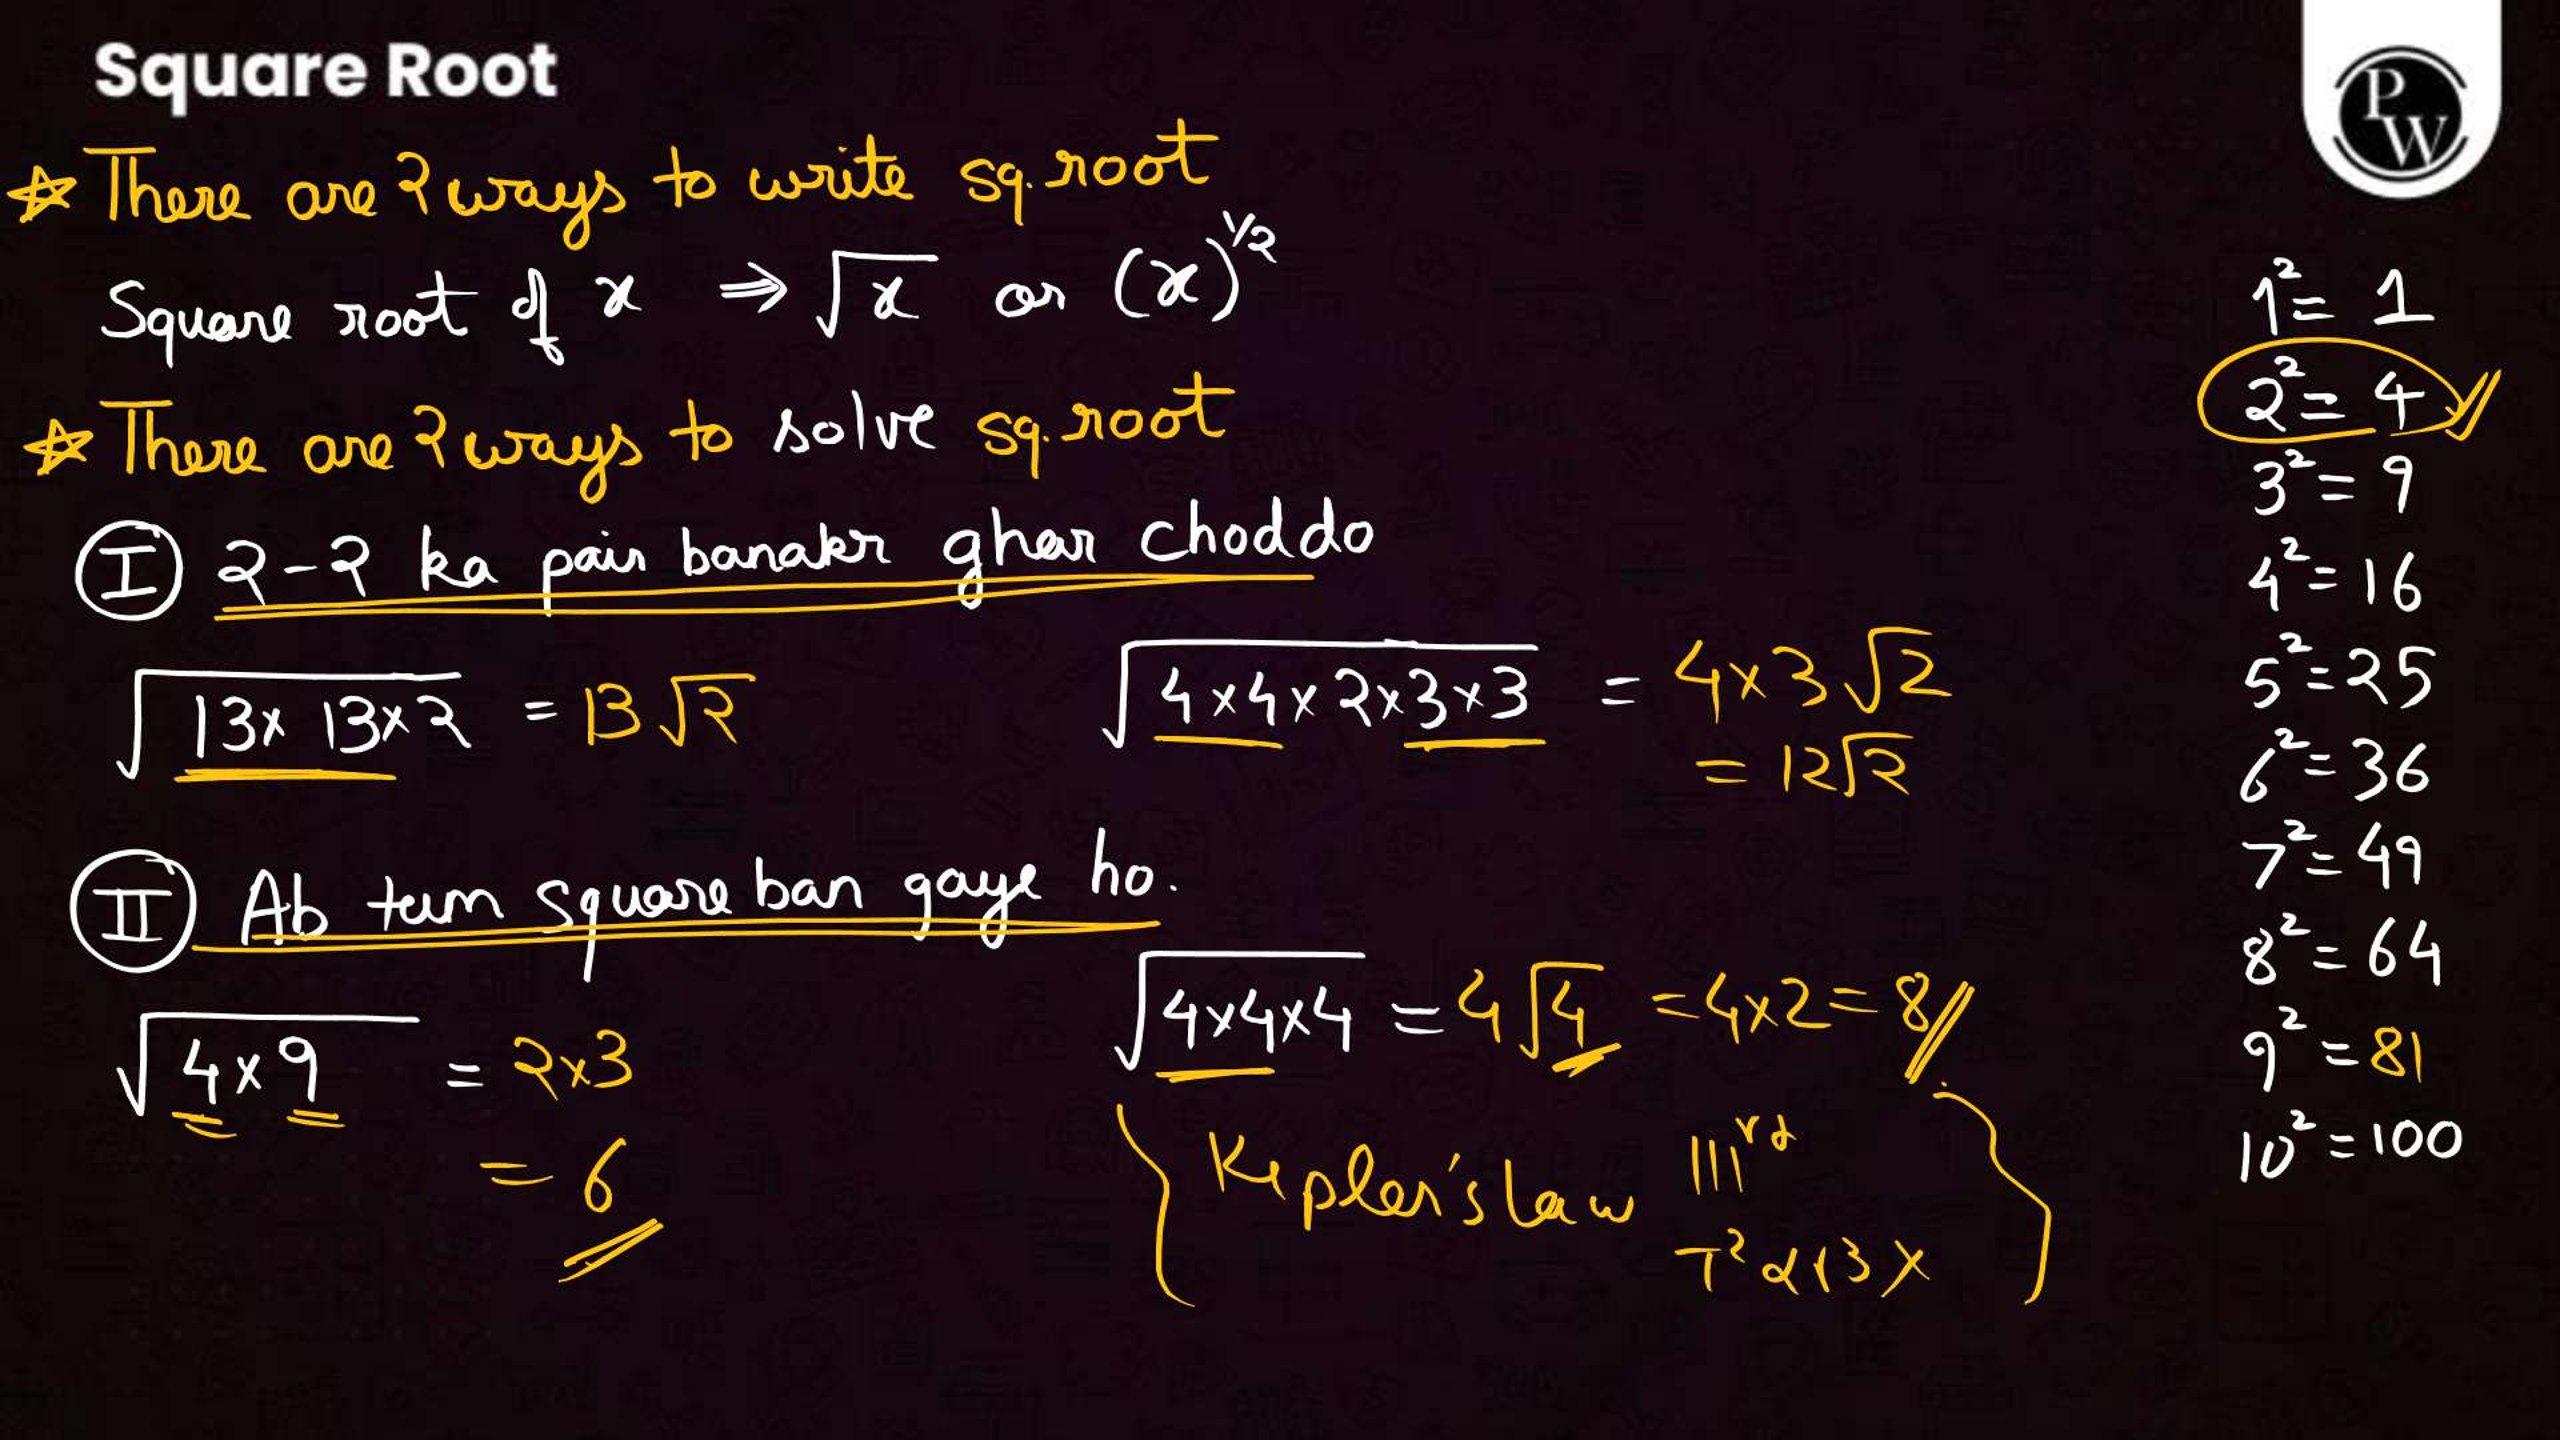 Square Root
PW
☆ There are 2 ways to write sq. root
Square root of x ⇒ √x or (x)^1/2
☆ There are 2 ways to solve sq. root
I 2-2 ka pair banakr ghar choddo
√13x 13x2 = 13√2
√4x4x2x3x3 = 4x3√2
= 12√2
II Ab tum square ban gaye ho.
√4x9 = 2x3
= 6
√4x4x4 = 4√4 = 4x2 = 8
Kepler's law IIIrd
T² α r3 X
1² = 1
2² = 4
3² = 9
4² = 16
5² = 25
6² = 36
7² = 49
8² = 64
9² = 81
10² = 100